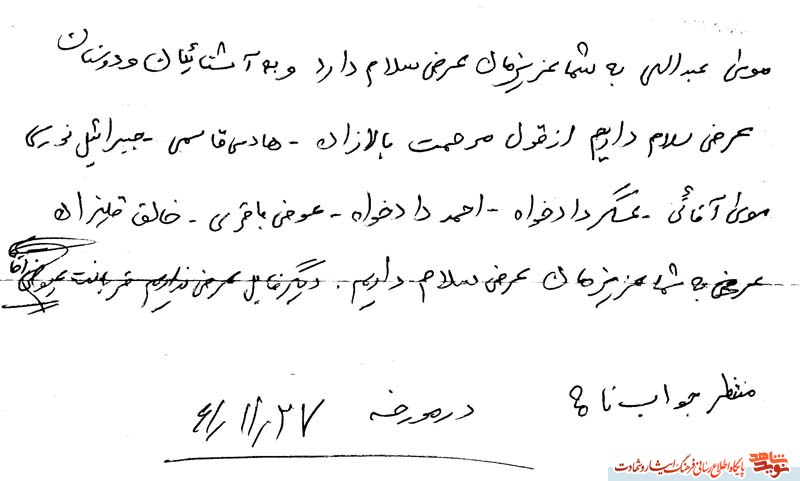 موسی عبدالهی به شما عزیزمان عرض سلام دارد و به آشنائیان و دوستان
عرض سلام داریم از قول مرحمت بالازاده - هادی قاسمی - جبرائیل نوری
موسی آقائی - عسگر دادخواه - احمد دادخواه - عوض باقری - خالق قلیزاده
عرض به شما عزیزمان عرض سلام داریم. دیگر قابل عرض نداریم قربانت عیوض آقا
منتظر جواب نامه
در مورخه ۶۱/۱۱/۲۷
نوید شاهد
پایگاه اطلاع رسانی فرهنگ ایثار و شهادت